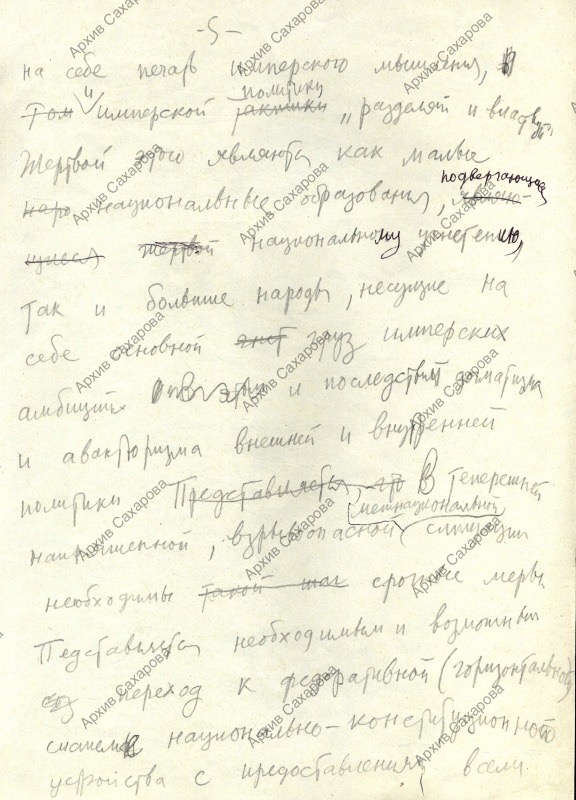 -5-
на себе печать имперского мышления, в
том имперской тактики политики „разделяй и властвуй"
Жертвой этого являются как малые
наро национальные образования, являю- подвергающиеся
щиеся жертвой национальному угнетению,
так и большие народы, несущие на
себе основной гнет груз имперских
амбиций и последствий догматизма
и авантюризма внешней и внутренней
политики Представляется, что В теперешней
напряженной, взрывоопасной межнациональной ситуации
необходимы такой шаг срочные меры
Педставляется необходимым и возможным
переход к федеративной (горизонтальной)
системе национально-конституционного
устройства с предоставлением всем
Архив Сахарова